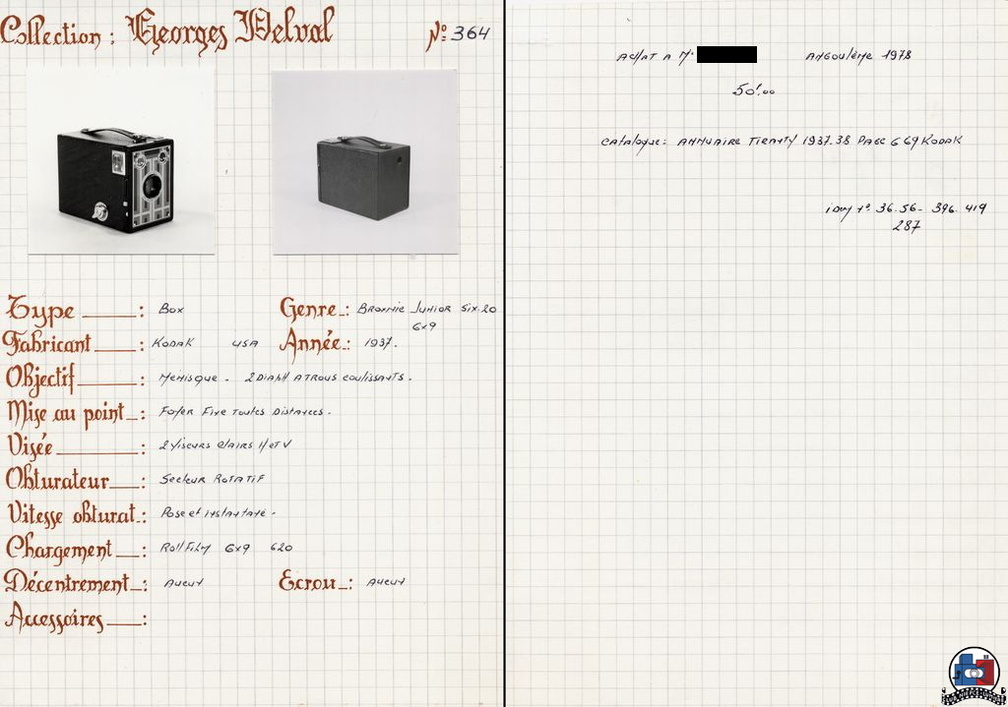 Collection : Georges Delval
N°: 364
Type : Box
Genre : Brownie Junior Six.20
6x9
Fabricant : Kodak USA
Année : 1937.
Objectif : Ménisque. 2 Diaph A Trous coulissants.
Mise au point : Foyer Fixe Toutes Distances.
Visée : 2 Viseurs Clairs H et V
Obturateur : Secteur Rotatif
Vitesse obturat. : Pose et instantané.
Chargement : RollFilm 6x9 620
Décentrement : Aucun
Ecrou : Aucun
Accessoires :
Achat a Mr Angoulême 1978
50f.00
Catalogue : Annuaire Tiranty 1937.38 Page 669 Kodak
36.56- 396. 419
287